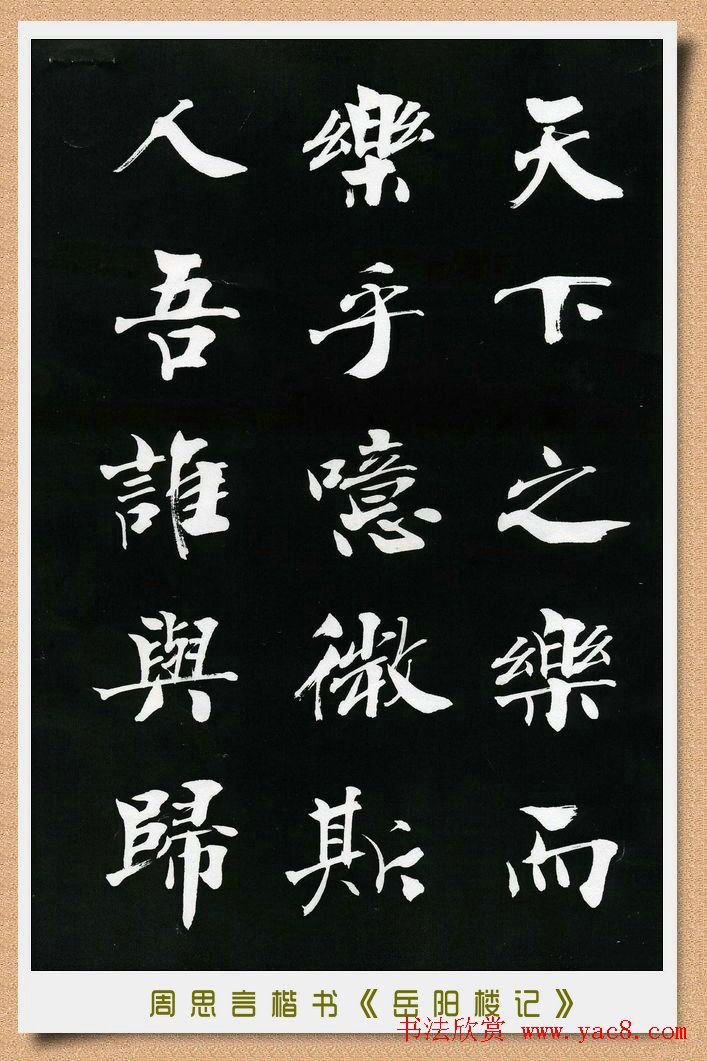 天下之樂而
樂乎噫微斯
人吾誰與歸
周思言楷书《岳阳楼记》
书法欣赏 www.yac8.com